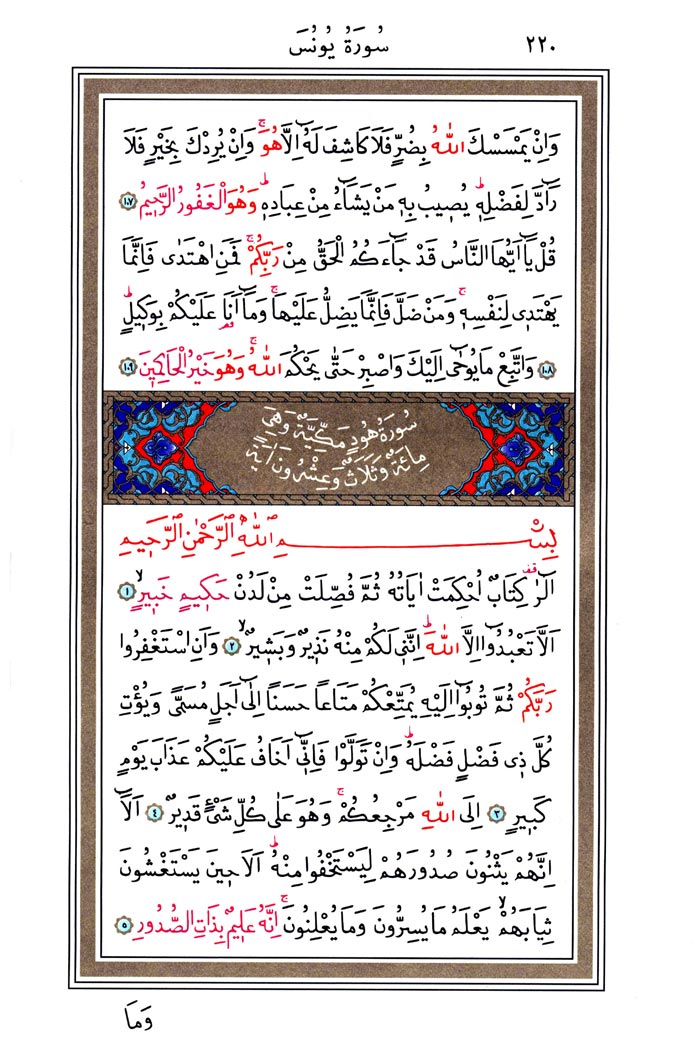 سُورَةُ يُونُسَ ٢٢٠
وَاِنْ يَمْسَسْكَ اللّٰهُ بِضُرٍّ فَلَا كَاشِفَ لَهُٓ اِلَّا هُوَۚ وَاِنْ يُرِدْكَ بِخَيْرٍ فَلَا
رَٓادَّ لِفَضْلِه۪ۜ يُص۪يبُ بِه۪ مَنْ يَشَٓاءُ مِنْ عِبَادِه۪ۜ وَهُوَ الْغَفُورُ الرَّح۪يمُ ﴿١٠٧﴾
قُلْ يَٓا اَيُّهَا النَّاسُ قَدْ جَٓاءَكُمُ الْحَقُّ مِنْ رَبِّكُمْۚ فَمَنِ اهْتَدٰى فَاِنَّمَا
يَهْتَد۪ي لِنَفْسِه۪ۚ وَمَنْ ضَلَّ فَاِنَّمَا يَضِلُّ عَلَيْهَاۚ وَمَٓا اَنَا۬ عَلَيْكُمْ بِوَك۪يلٍۜ
﴿١٠٨﴾ وَاتَّبِعْ مَا يُوحٰٓى اِلَيْكَ وَاصْبِرْ حَتّٰى يَحْكُمَ اللّٰهُۚ وَهُوَ خَيْرُ الْحَاكِم۪ينَ ﴿١٠٩﴾
سُورَةُ هُودٍ مَكِّيَّةٌ وَهِيَ
مِائَةٌ وَثَلَاثٌ وَعِشْرُونَ اٰيَةً
بِسْمِ اللّٰهِ الرَّحْمٰنِ الرَّح۪يمِ
الٓرٰ۠ كِتَابٌ اُحْكِمَتْ اٰيَاتُهُ ثُمَّ فُصِّلَتْ مِنْ لَدُنْ حَك۪يمٍ خَب۪يرٍۙ ﴿١﴾
اَلَّا تَعْبُدُٓوا اِلَّا اللّٰهَۜ اِنَّن۪ي لَكُمْ مِنْهُ نَذ۪يرٌ وَبَش۪يرٌۙ ﴿٢﴾ وَاَنِ اسْتَغْفِرُوا
رَبَّكُمْ ثُمَّ تُوبُٓوا اِلَيْهِ يُمَتِّعْكُمْ مَتَاعًا حَسَنًا اِلٰٓى اَجَلٍ مُسَمًّى وَيُؤْتِ
كُلَّ ذ۪ي فَضْلٍ فَضْلَهُۜ وَاِنْ تَوَلَّوْا فَاِنّ۪ٓي اَخَافُ عَلَيْكُمْ عَذَابَ يَوْمٍ
كَب۪يرٍ ﴿٣﴾ اِلَى اللّٰهِ مَرْجِعُكُمْۚ وَهُوَ عَلٰى كُلِّ شَيْءٍ قَد۪يرٌ ﴿٤﴾ اَلَٓا
اِنَّهُمْ يَثْنُونَ صُدُورَهُمْ لِيَسْتَخْفُوا مِنْهُۜ اَلَا ح۪ينَ يَسْتَغْشُونَ
ثِيَابَهُمْۙ يَعْلَمُ مَا يُسِرُّونَ وَمَا يُعْلِنُونَۚ اِنَّهُ عَل۪يمٌ بِذَاتِ الصُّدُورِ ﴿٥﴾
وَمَا